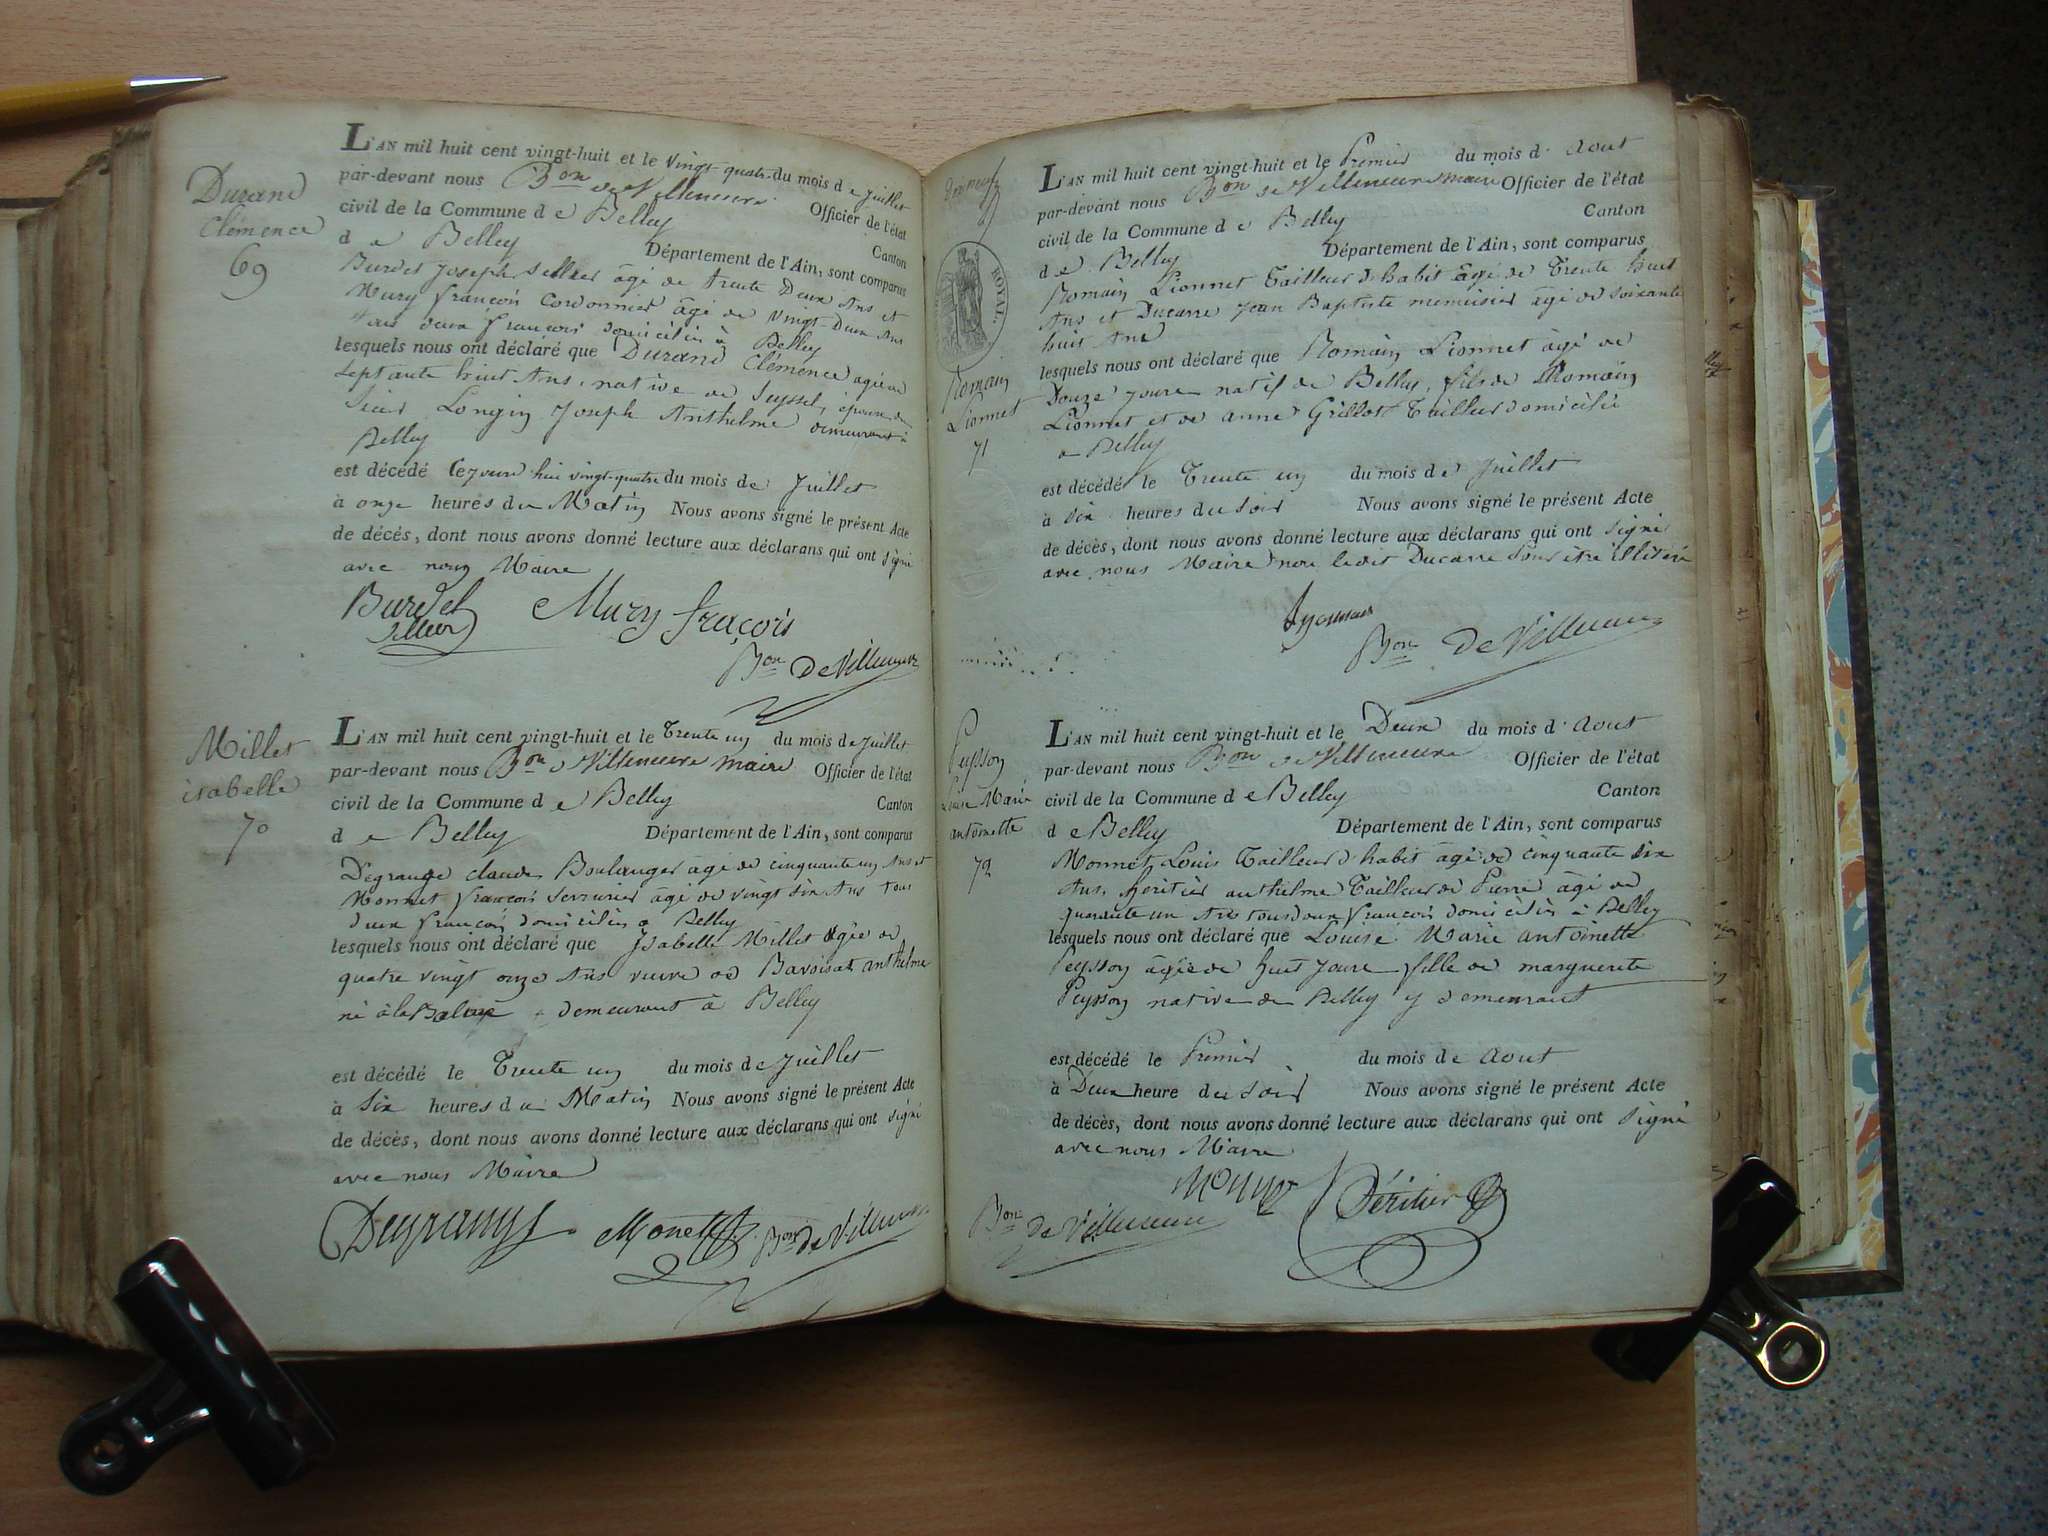 Durand
Clémence
69
L'AN mil huit cent vingt-huit et le vingt-quatre du mois de juillet
par-devant nous Bon de Villeneuve Officier de l'état
civil de la Commune de Belley Canton
de Belley Département de l'Ain, sont comparus
Burdet Joseph sellier âgé de trente Deux Ans et
Mury françois Cordonnier âgé de vingt-Deux Ans
tous deux françois domiciliés à Belley
lesquels nous ont déclaré que Durand Clémence agée de
septante huit Ans, native de Seyssel, épouse de
Sieur Longin Joseph Anthelme demeurant à
Belley
est décédé Cejourd'hui vingt-quatre du mois de Juillet
à onze heures du Matin Nous avons signé le présent Acte
de décés, dont nous avons donné lecture aux déclarans qui ont signé
avec nous Maire
Burdet
sellier
Mury fraçois
Bon De Villeneuve
Millet
isabelle
70
L'AN mil huit cent vingt-huit et le Trente un du mois de juillet
par-devant nous Bon de Villeneuve maire Officier de l'état
civil de la Commune de Belley Canton
de Belley Département de l'Ain, sont comparus
Degrange claude Boulanger âgé de cinquante un Ans et
Monnet françois serrurier âgé de vingt six Ans tous
deux françois domiciliés à Belley
lesquels nous ont déclaré que Isabelle Millet agée de
quatre vingt onze Ans veuve de Bavoisat anthelme
né à la Balme demeurant à Belley
est décédé le Trente un du mois de Juillet
à Six heures du Matin Nous avons signé le présent Acte
de décès, dont nous avons donné lecture aux déclarans qui ont signé
avec nous Maire
Degrange
Monet
Bon de Villeneuve
ROYAL
Romain
Lionnet
71
L'AN mil huit cent vingt-huit et le Premier du mois d'Aout
par-devant nous Bon de Villeneuve maire Officier de l'état
civil de la Commune de Belley Canton
de Belley Département de l'Ain, sont comparus
Romain Lionnet Tailleur d'habit âgé de Trente huit
Ans et Ducarre Jean Baptiste menuisier âgé de soixante
huit Ans
lesquels nous ont déclaré que Romain Lionnet âgé de
Douze jours natif de Belley, fils de Romain
Lionnet et de anne Grillot Tailleur domicilié
a Belley
est décédé le Trente un du mois de Juillet
à six heures du soir Nous avons signé le présent Acte
de décès, dont nous avons donné lecture aux déclarans qui ont signé
avec nous Maire non ledit Ducarre pour être illitéré
Bon De Villeneuve
Peysson
Louise Marie
antoinette
72
L'AN mil huit cent vingt-huit et le Deux du mois d'Aout
par-devant nous Bon de Villeneuve Officier de l'état
civil de la Commune de Belley Canton
de Belley Département de l'Ain, sont comparus
Monnet Louis Tailleur d'habit âgé de cinquante six
Ans, héritier anthelme Tailleur de Pierre âgé de
quarante un Ans tous deux françois domiciliés à Belley
lesquels nous ont déclaré que Louise Marie antoinette
Peysson âgée de huit Jours fille de marguerite
Peysson native de Belley y demeurant
est décédé le Premier du mois de Aout
à Deux heure du soir Nous avons signé le présent Acte
de décès, dont nous avons donné lecture aux déclarans qui ont signé
avec nous Maire
Héritier
Bon de Villeneuve